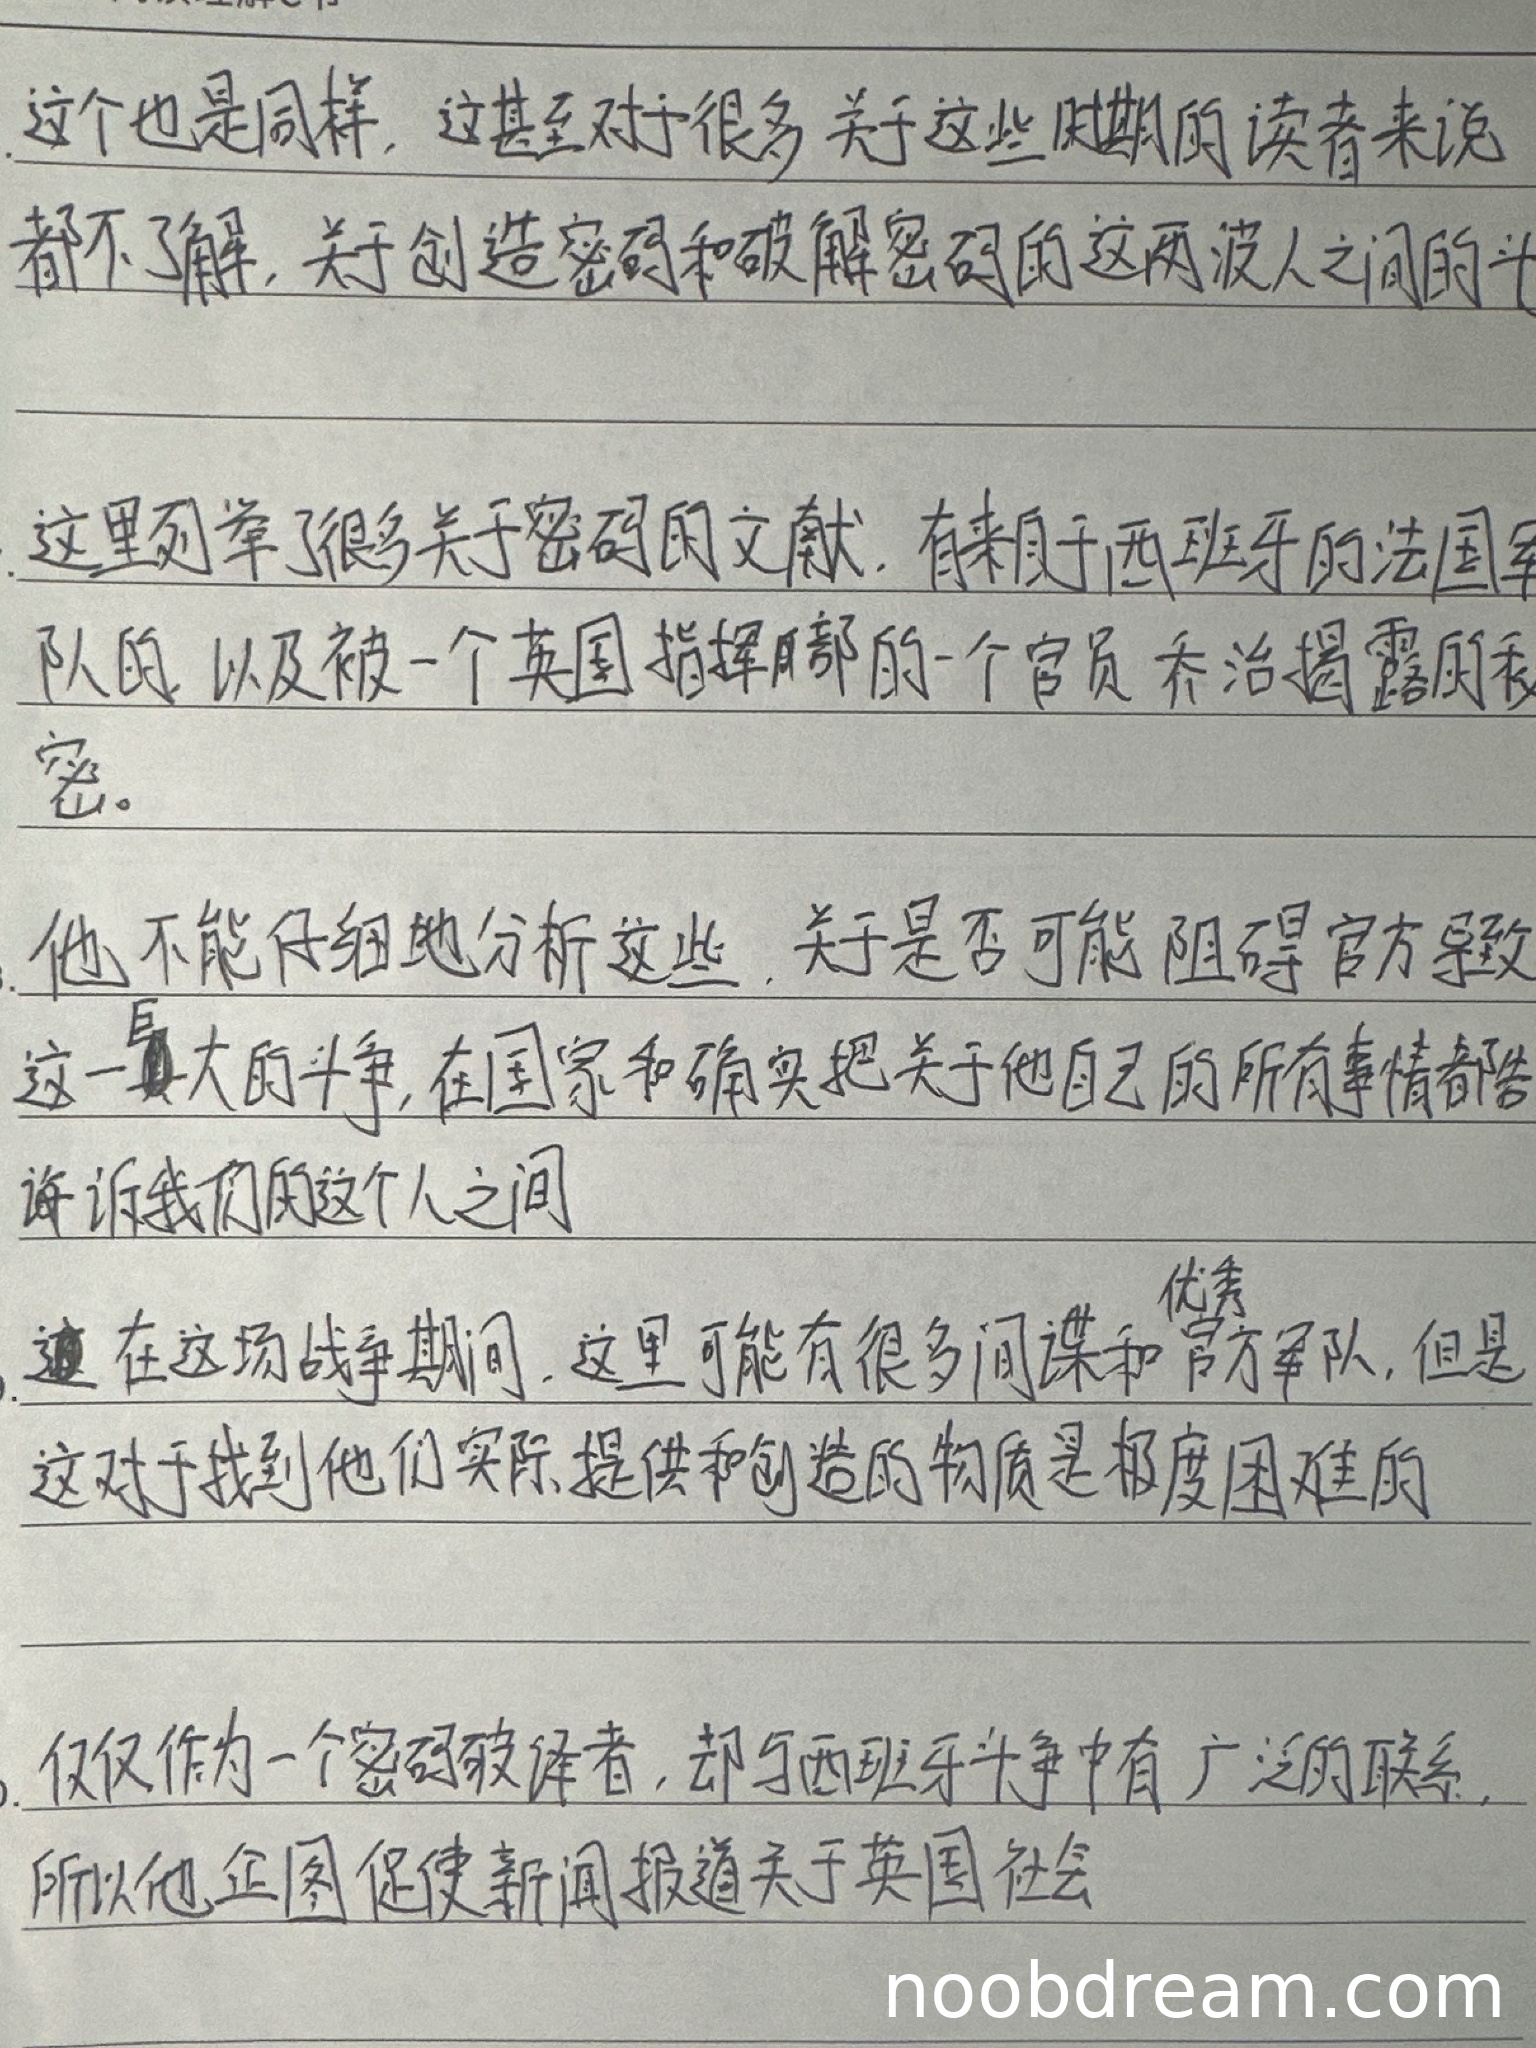 这个也是同样，这甚至对于很多关于这些时期的读者来说
都不了解，关于创造密码和破解密码的这两波人之间的斗
这里列举了很多关于密码的文献，有来自于西班牙的法国军
队的，以及被一个英国指挥部的一个官员乔治揭露的秘
密。
他不能仔细地分析这些，关于是否可能阻碍官方导致
这一巨大的斗争，在国家和确实把关于他自己的所有事情都告
诉我们的这个人之间
在这场战争期间，这里可能有很多间谍和优秀官方军队，但是
这对于找到他们实际提供和创造的物质是极度困难的
仅仅作为一个密码破译者，却与西班牙斗争中有广泛的联系，
所以他企图促使新闻报道关于英国社会
noobdream.com